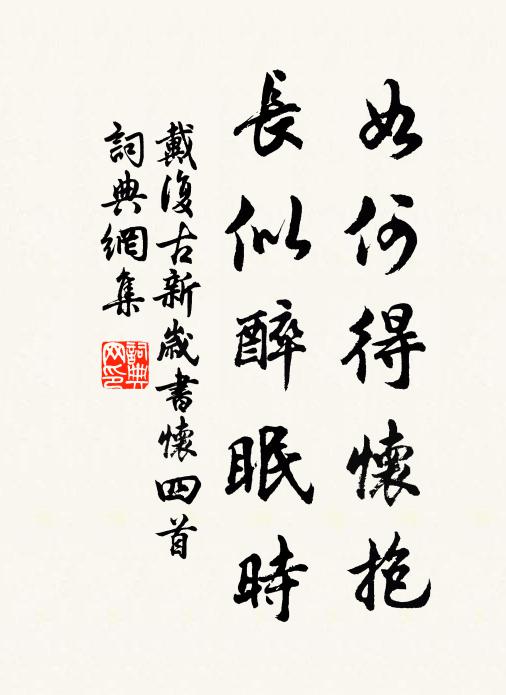 如何得懷抱
長似醉眠時
戴復古新歲書懷四首
詞典網集
詞典網印